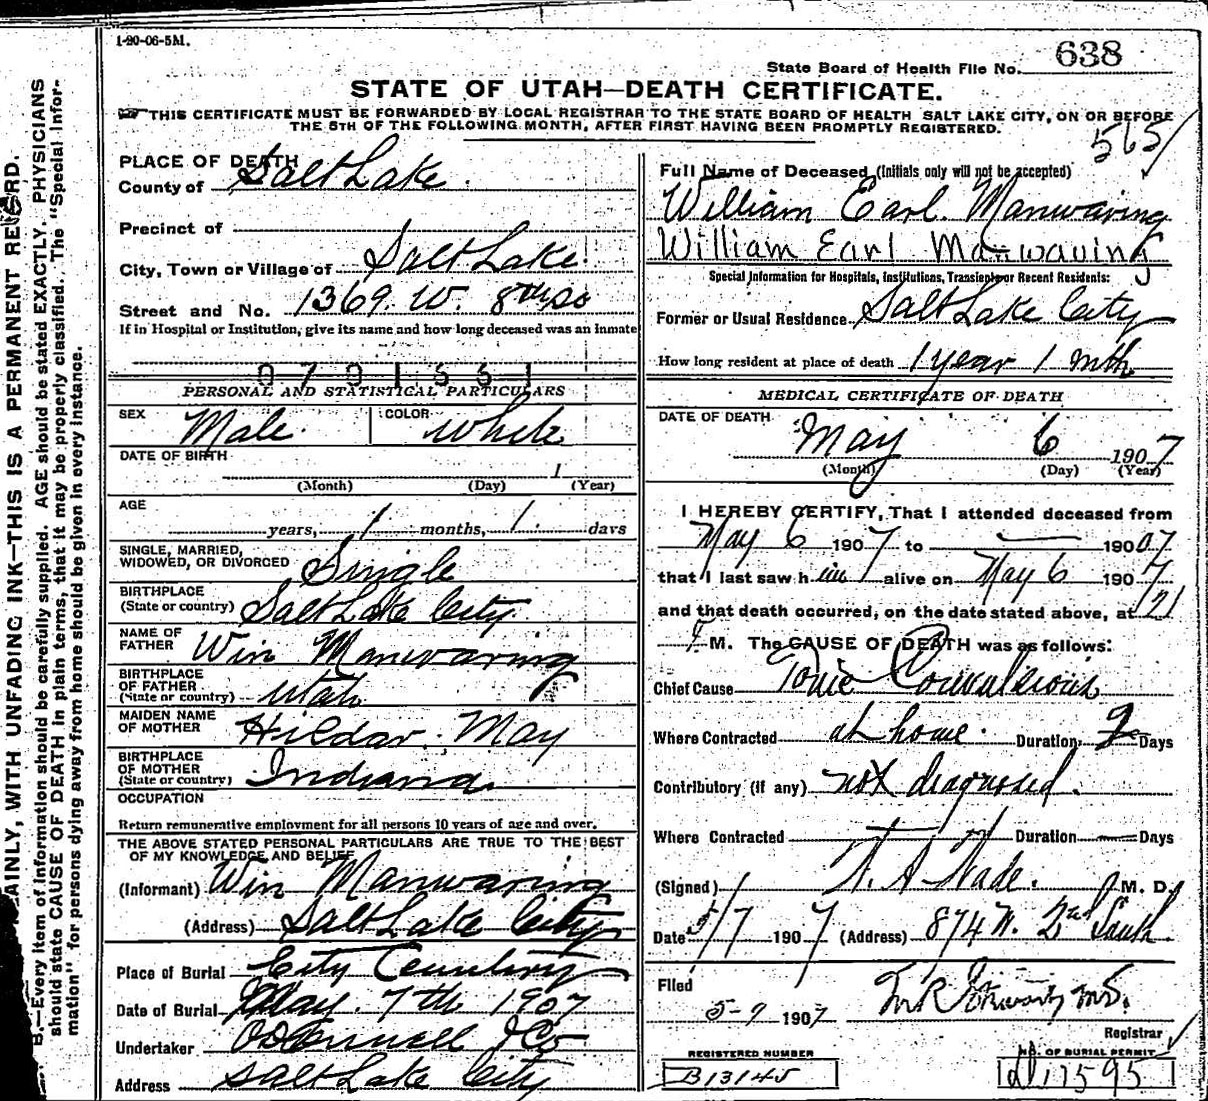 1-20-06-5M.
State Board of Health File No. 638
STATE OF UTAH—DEATH CERTIFICATE.
THIS CERTIFICATE MUST BE FORWARDED BY LOCAL REGISTRAR TO THE STATE BOARD OF HEALTH SALT LAKE CITY, ON OR BEFORE
THE 5TH OF THE FOLLOWING MONTH, AFTER FIRST HAVING BEEN PROMPTLY REGISTERED.
565
PLACE OF DEATH
County of Salt Lake.
Precinct of
City, Town or Village of Salt Lake.
Street and No. 1369. W. 8th So
If in Hospital or Institution, give its name and how long deceased was an inmate
PERSONAL AND STATISTICAL PARTICULARS
SEX Male. COLOR White
DATE OF BIRTH 1
(Month) (Day) (Year)
AGE
years, 1 months, 1 days
SINGLE, MARRIED,
WIDOWED, OR DIVORCED Single
BIRTHPLACE
(State or country) Salt Lake City.
NAME OF
FATHER Win Manwaring
BIRTHPLACE
OF FATHER
(State or country) Utah
MAIDEN NAME
OF MOTHER Hildar. May
BIRTHPLACE
OF MOTHER
(State or country) Indiana.
OCCUPATION
Return remunerative employment for all persons 10 years of age and over.
THE ABOVE STATED PERSONAL PARTICULARS ARE TRUE TO THE BEST
OF MY KNOWLEDGE AND BELIEF
(Informant) Win Manwaring
(Address) Salt Lake City
Place of Burial City Cemetery
Date of Burial May. 7th 1907
Undertaker O'Donnell & Co
Address Salt Lake City
Full Name of Deceased (Initials only will not be accepted)
William Earl. Manwaring
William Earl Manwaving
Special Information for Hospitals, Institutions, Transients or Recent Residents:
Former or Usual Residence Salt Lake City
How long resident at place of death 1 year 1 mth
MEDICAL CERTIFICATE OF DEATH
DATE OF DEATH
May 6 1907
(Month) (Day) (Year)
I HEREBY CERTIFY, That I attended deceased from
May 6 1907 to 1907
that I last saw him alive on May 6 1907
and that death occurred, on the date stated above, at 121
M. The CAUSE OF DEATH was as follows:
Chief Cause Tonic Convulsions
Where Contracted at home. Duration 2 Days
Contributory (if any) not diagnosed.
Where Contracted Duration Days
(Signed) M. D.
Date 5/7 1907 (Address) 874 W. 2nd South.
Filed
5-9 1907
Registrar
REGISTERED NUMBER
B13145
NO. OF BURIAL PERMIT
17595
AINLY, WITH UNFADING INK—THIS IS A PERMANENT RECORD.
B.—Every item of information should be carefully supplied. AGE should be stated EXACTLY. PHYSICIANS
should state CAUSE OF DEATH in plain terms, that it may be properly classified. The "Special Infor-
mation" for persons dying away from home should be given in every instance.